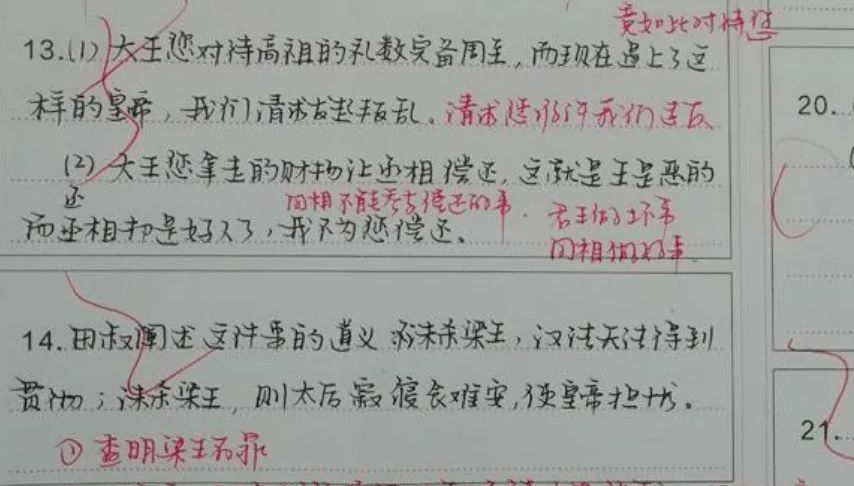 竟如此对待您
13.(1)大王您对待高祖的礼数完备周至，而现在遇上了这
样的皇帝，我们请求您起叛乱。请求您允许我们造反
(2)大王您拿走的财物让丞相偿还，这就是王是恶的
还
而丞相却是好人了，我不为您偿还。
田相不能参与偿还的事.
君王做了坏事
田相做好事.
14.田叔阐述这件事的道义 若未杀梁王，汉法无法得到
贯彻；诛杀梁王，则太后寂寝食难安，使皇帝担忧。
①查明梁王有罪
20.
21.